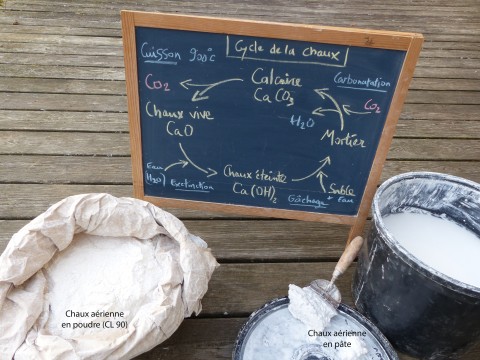 Cycle de la chaux
Cuisson 900°c
CO₂
Calcaire
CaCO₃
Carbonatation
CO₂
H₂O
Mortier
Chaux vive
CaO
Eau
(H₂O) Extinction
Chaux éteinte
Ca(OH)₂
Sable
+ Eau
Gâchage
Chaux aérienne
en poudre (CL 90)
Chaux aérienne
en pâte